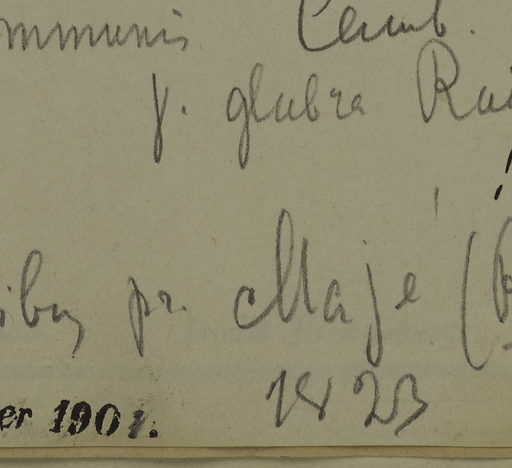 mmunis Camb.
γ. glabra
pr. Majé (
1823
er 1901.